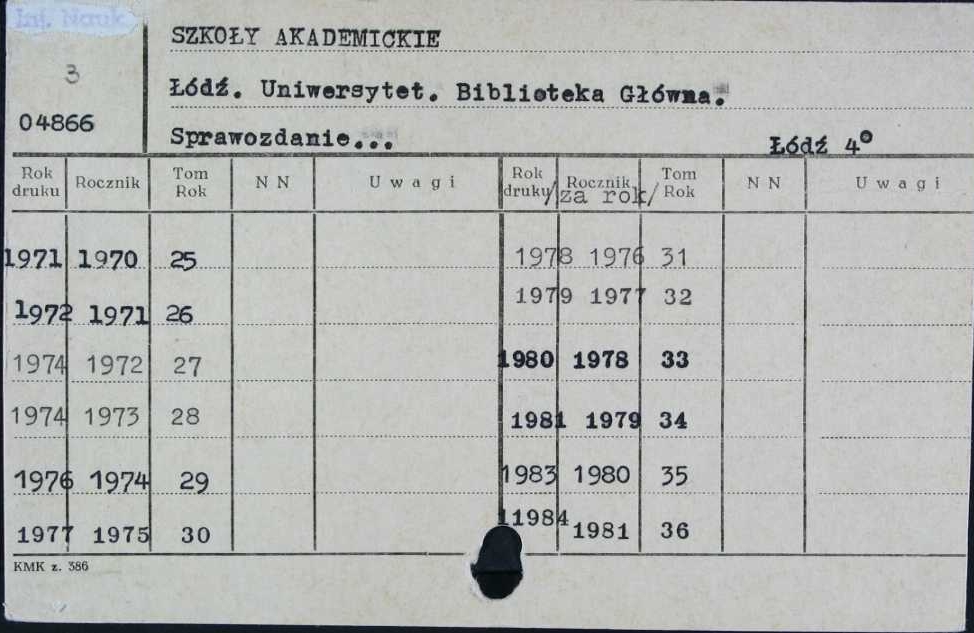 Inf. Nauk
3
04866
SZKOŁY AKADEMICKIE
Łódź. Uniwersytet. Biblioteka Główna.
Sprawozdanie... Łódź 4°
Rok druku Rocznik Tom Rok N N Uwagi Rok druku Rocznik /za rok/ Tom Rok N N Uwagi
1971 1970 25 1978 1976 31
1972 1971 26 1979 1977 32
1974 1972 27 1980 1978 33
1974 1973 28 1981 1979 34
1976 1974 29 1983 1980 35
1977 1975 30 11984 1981 36
KMK z. 386